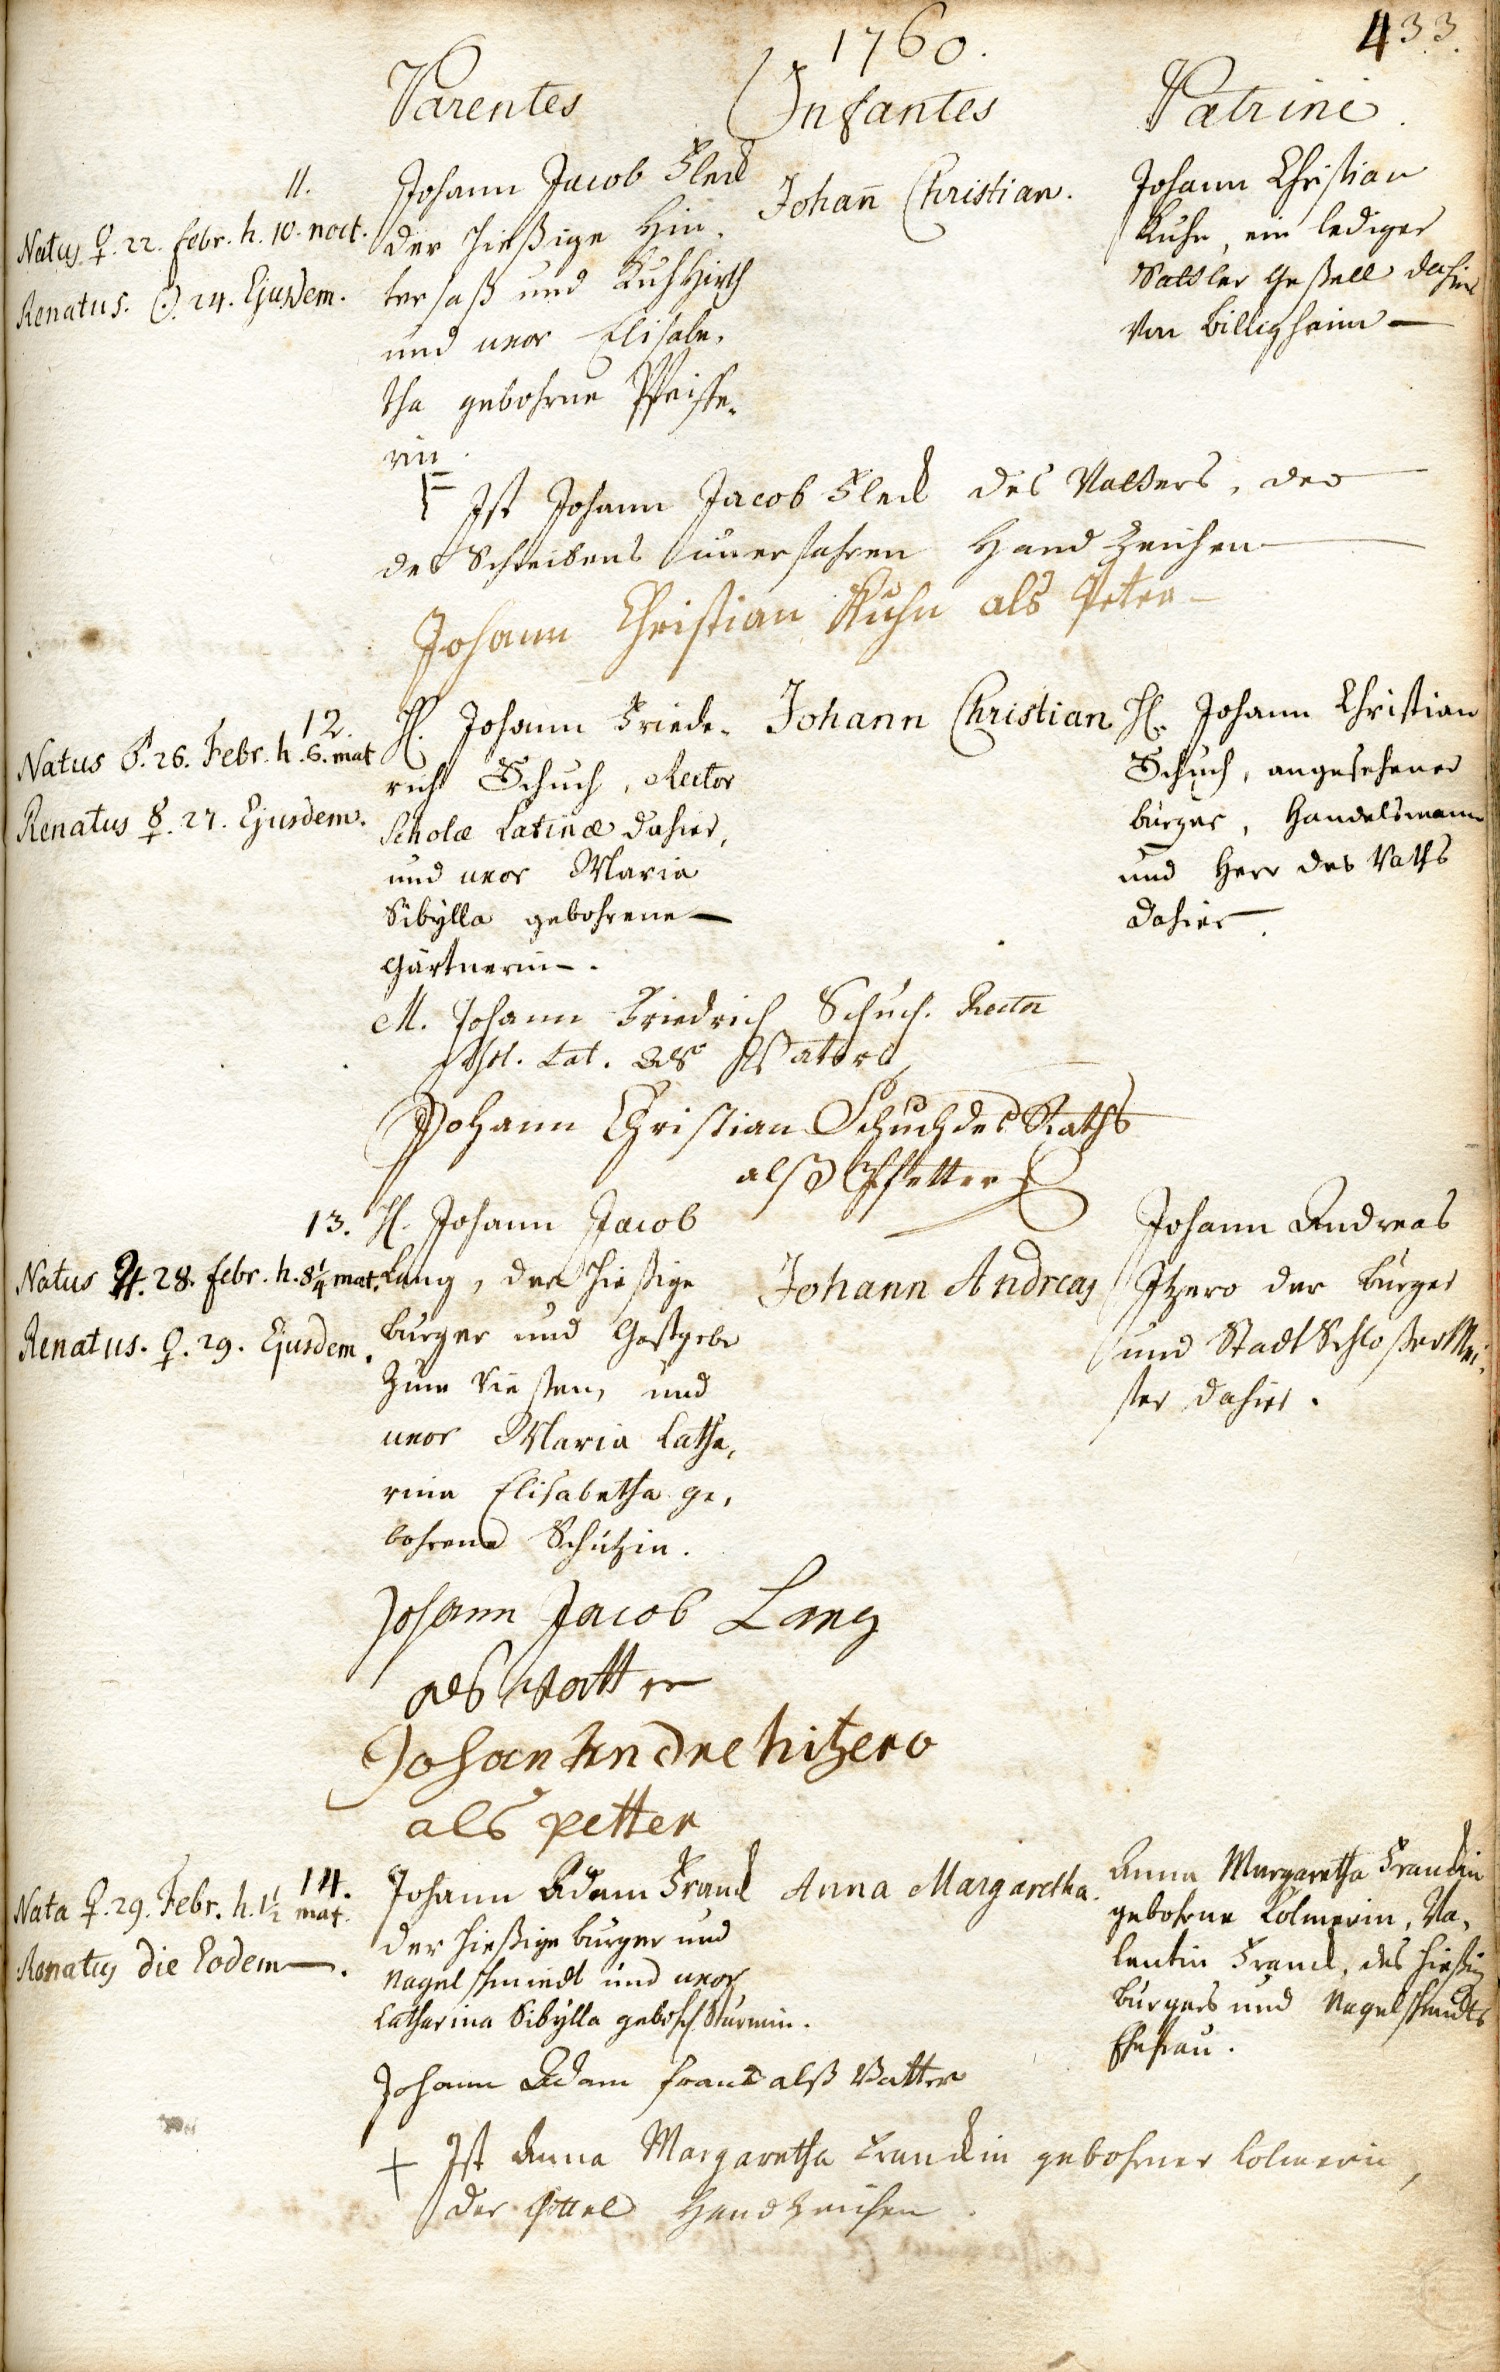 1760.
433.
Parentes
Infantes
Patrini.
11.
Natus ♀. 22. febr. h. 10. noct.
Renatus. ☉. 24. Ejusdem.
Johann Jacob Fleck
der hießige Hin,
tersaß und Kuhhirth
und uxor Elisabe,
tha gebohrne Pfeiffe,
rin.
Johann̅ Christian.
Johann Christian
Kuhn, ein lediger
Sattler Gesell dahier
von Billigheim —
Ist Johann Jacob Fleck des Vatters, der
des Schreibens unerfahren Hand Zeichen
Johann Christian Kuhn als Peter
12.
Natus ♂. 26. Febr. h. 6. mat
Renatus ☿. 27. Ejusdem.
H. Johann Friede,
rich Schuch, Rector
Scholæ Latinæ dahier,
und uxor Maria
Sibÿlla gebohrene —
Gärtnerin —.
Johann Christian
H. Johann Christian
Schuch, angesehener
burger, Handelsmann
und Herr des Raths
dahier.
M. Johann Friedrich Schuch. Rector
Schol. Lat. als Vater
Johann Christian Schuch des Raths
alß Pfetter
13.
Natus ♃. 28. febr. h. 8¼ mat.
Renatus. ♀. 29. Ejusdem.
H. Johann Jacob
Lang, der hießige
burger und Gastgeber
zum Riesen, und
uxor Maria Catha,
rina Elisabetha ge,
bohrene Schützin.
Johann Andreas
Johann Andreas
Itzero der burger
und Stadt Schloßer Mei,
ster dahier.
Johann Jacob Lang
als Vatter
Johan Andre hitzero
als petter
14.
Nata ♀. 29. Febr. h. 1½ mat.
Renatus die Eodem —.
Johann Adam Franck
der hießige burger und
Nagelschmiedt und uxor
Catharina Sibÿlla gebohr. Sturmin.
Anna Margaretha.
Anna Margaretha Franckin
gebohrne Colmerin, Va,
lentin Franck, des hießig
burgers und Nagelschmidts
Ehefrau.
Johann Adam franck alß Vatter
+ Ist Anna Margaretha Franckin gebohrner Colmerin,
der Göttel Handzeichen.